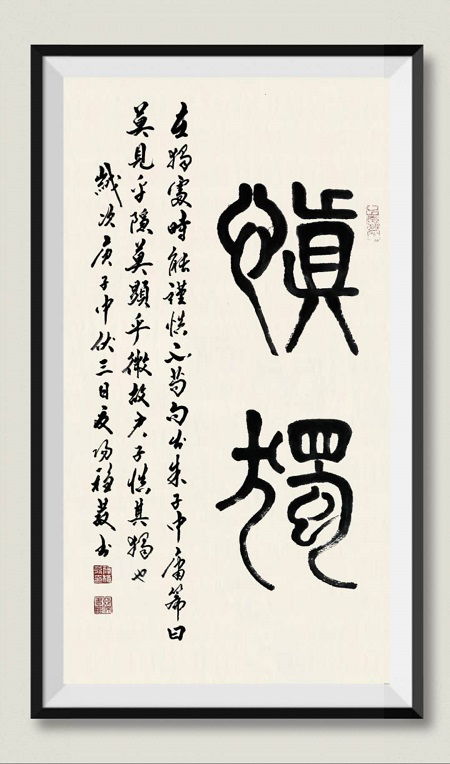 慎獨
在獨處時能謹慎不苟句出朱子中庸篇曰
莫見乎隱莫顯乎微故君子慎其獨也
歲次庚子中伏三日書